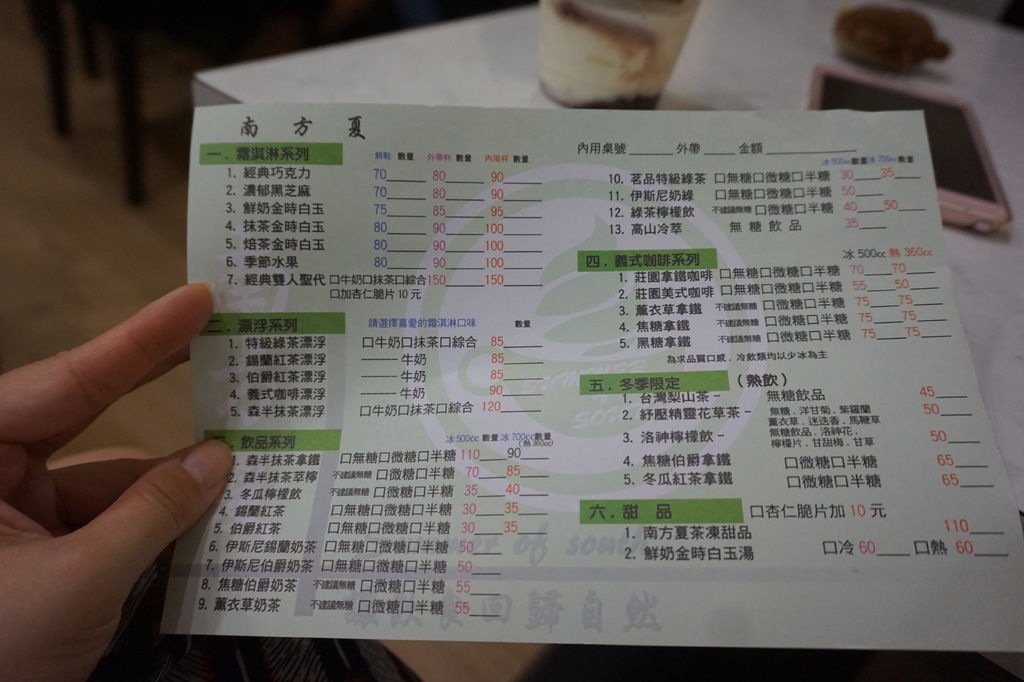 南方夏
一．霜淇淋系列 餅乾 數量 外帶杯 數量 內用杯 數量
1. 經典巧克力 70____ 80____ 90____
2. 濃郁黑芝麻 70____ 80____ 90____
3. 鮮奶金時白玉 75____ 85____ 95____
4. 抹茶金時白玉 80____ 90____ 100____
5. 焙茶金時白玉 80____ 90____ 100____
6. 季節水果 80____ 90____ 100____
7. 經典雙人聖代 口牛奶口抹茶口綜合150____ 150____
口加杏仁脆片 10 元
二．漂浮系列 請選擇喜愛的霜淇淋口味 數量
1. 特級綠茶漂浮 口牛奶口抹茶口綜合 85____
2. 錫蘭紅茶漂浮 ------ 牛奶 85____
3. 伯爵紅茶漂浮 ------ 牛奶 85____
4. 義式咖啡漂浮 ------ 牛奶 90____
5. 森半抹茶漂浮 口牛奶口抹茶口綜合 120____
飲品系列 冰500cc 數量 冰700cc 數量
(熱360cc)
1. 森半抹茶拿鐵 口無糖口微糖口半糖 110____ 90____
2. 森半抹茶萃檸 不建議無糖 口微糖口半糖 70____ 85____
3. 冬瓜檸檬飲 不建議無糖 口微糖口半糖 35____ 40____
4. 錫蘭紅茶 口無糖口微糖口半糖 30____ 35____
5. 伯爵紅茶 口無糖口微糖口半糖 30____ 35____
6. 伊斯尼錫蘭奶茶 口無糖口微糖口半糖 50____
7. 伊斯尼伯爵奶茶 口無糖口微糖口半糖 50____
8. 焦糖伯爵奶茶 不建議無糖 口微糖口半糖 55____
9. 薰衣草奶茶 不建議無糖 口微糖口半糖 55____
內用桌號____ 外帶____ 金額____
冰500cc 數量 冰700cc 數量
10. 茗品特級綠茶 口無糖口微糖口半糖 30____ 35____
11. 伊斯尼奶綠 口無糖口微糖口半糖 50____
12. 綠茶檸檬飲 不建議無糖 口微糖口半糖 40____ 50____
13. 高山冷萃 無糖飲品 35____
四．義式咖啡系列 冰 500cc 熱 360cc
1. 莊園拿鐵咖啡 口無糖口微糖口半糖 70____ 70____
2. 莊園美式咖啡 口無糖口微糖口半糖 55____ 50____
3. 薰衣草拿鐵 不建議無糖 口微糖口半糖 75____ 75____
4. 焦糖拿鐵 不建議無糖 口微糖口半糖 75____ 75____
5. 黑糖拿鐵 不建議無糖 口微糖口半糖 75____ 75____
為求品質口感，冷飲類均以少冰為主
五．冬季限定 (熱飲)
1. 台灣梨山茶 - 無糖飲品 45____
2. 紓壓精靈花草茶 - 無糖．洋甘菊．紫羅蘭 50____
薰衣草．迷迭香．馬鞭草
3. 洛神檸檬飲 - 無糖飲品．洛神花． 50____
檸檬片．甘甜梅．甘草
4. 焦糖伯爵拿鐵 口微糖口半糖 65____
5. 冬瓜紅茶拿鐵 口微糖口半糖 65____
六．甜 品 口杏仁脆片加 10 元
1. 南方夏茶凍甜品 110____
2. 鮮奶金時白玉湯 口冷 60____ 口熱 60____
回歸自然